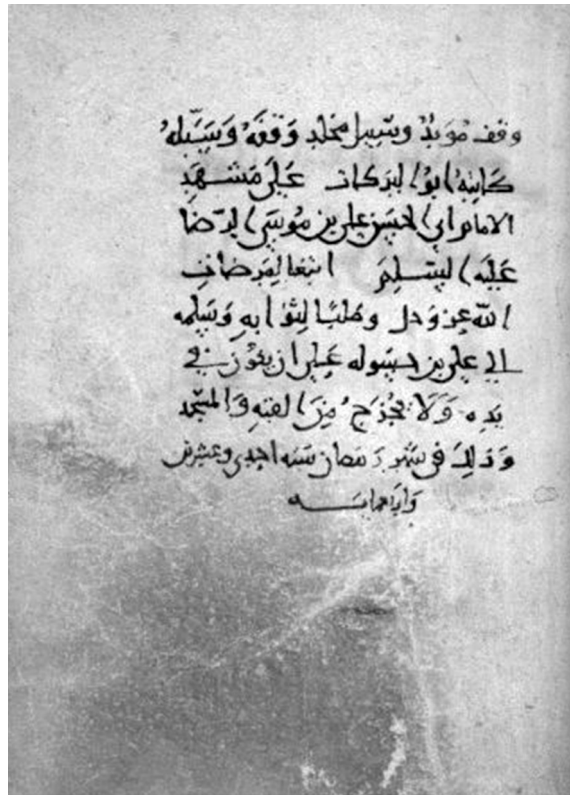 وقف مؤبد وسبيل مخلد وقفه وسبله
كاتبه ابو البركات على مشهد
الامام ابي الحسن علي بن موسى الرضا
عليه السلم ابتغا لمرضات
الله عز وجل وطلبا لثوابه وسلمه
الى علي بن حسوله على ان يكون في
يده ولا يخرج من القبه والمسجد
وذلك في شهر رمضان سنه احدى وعشرين
واربعمايه